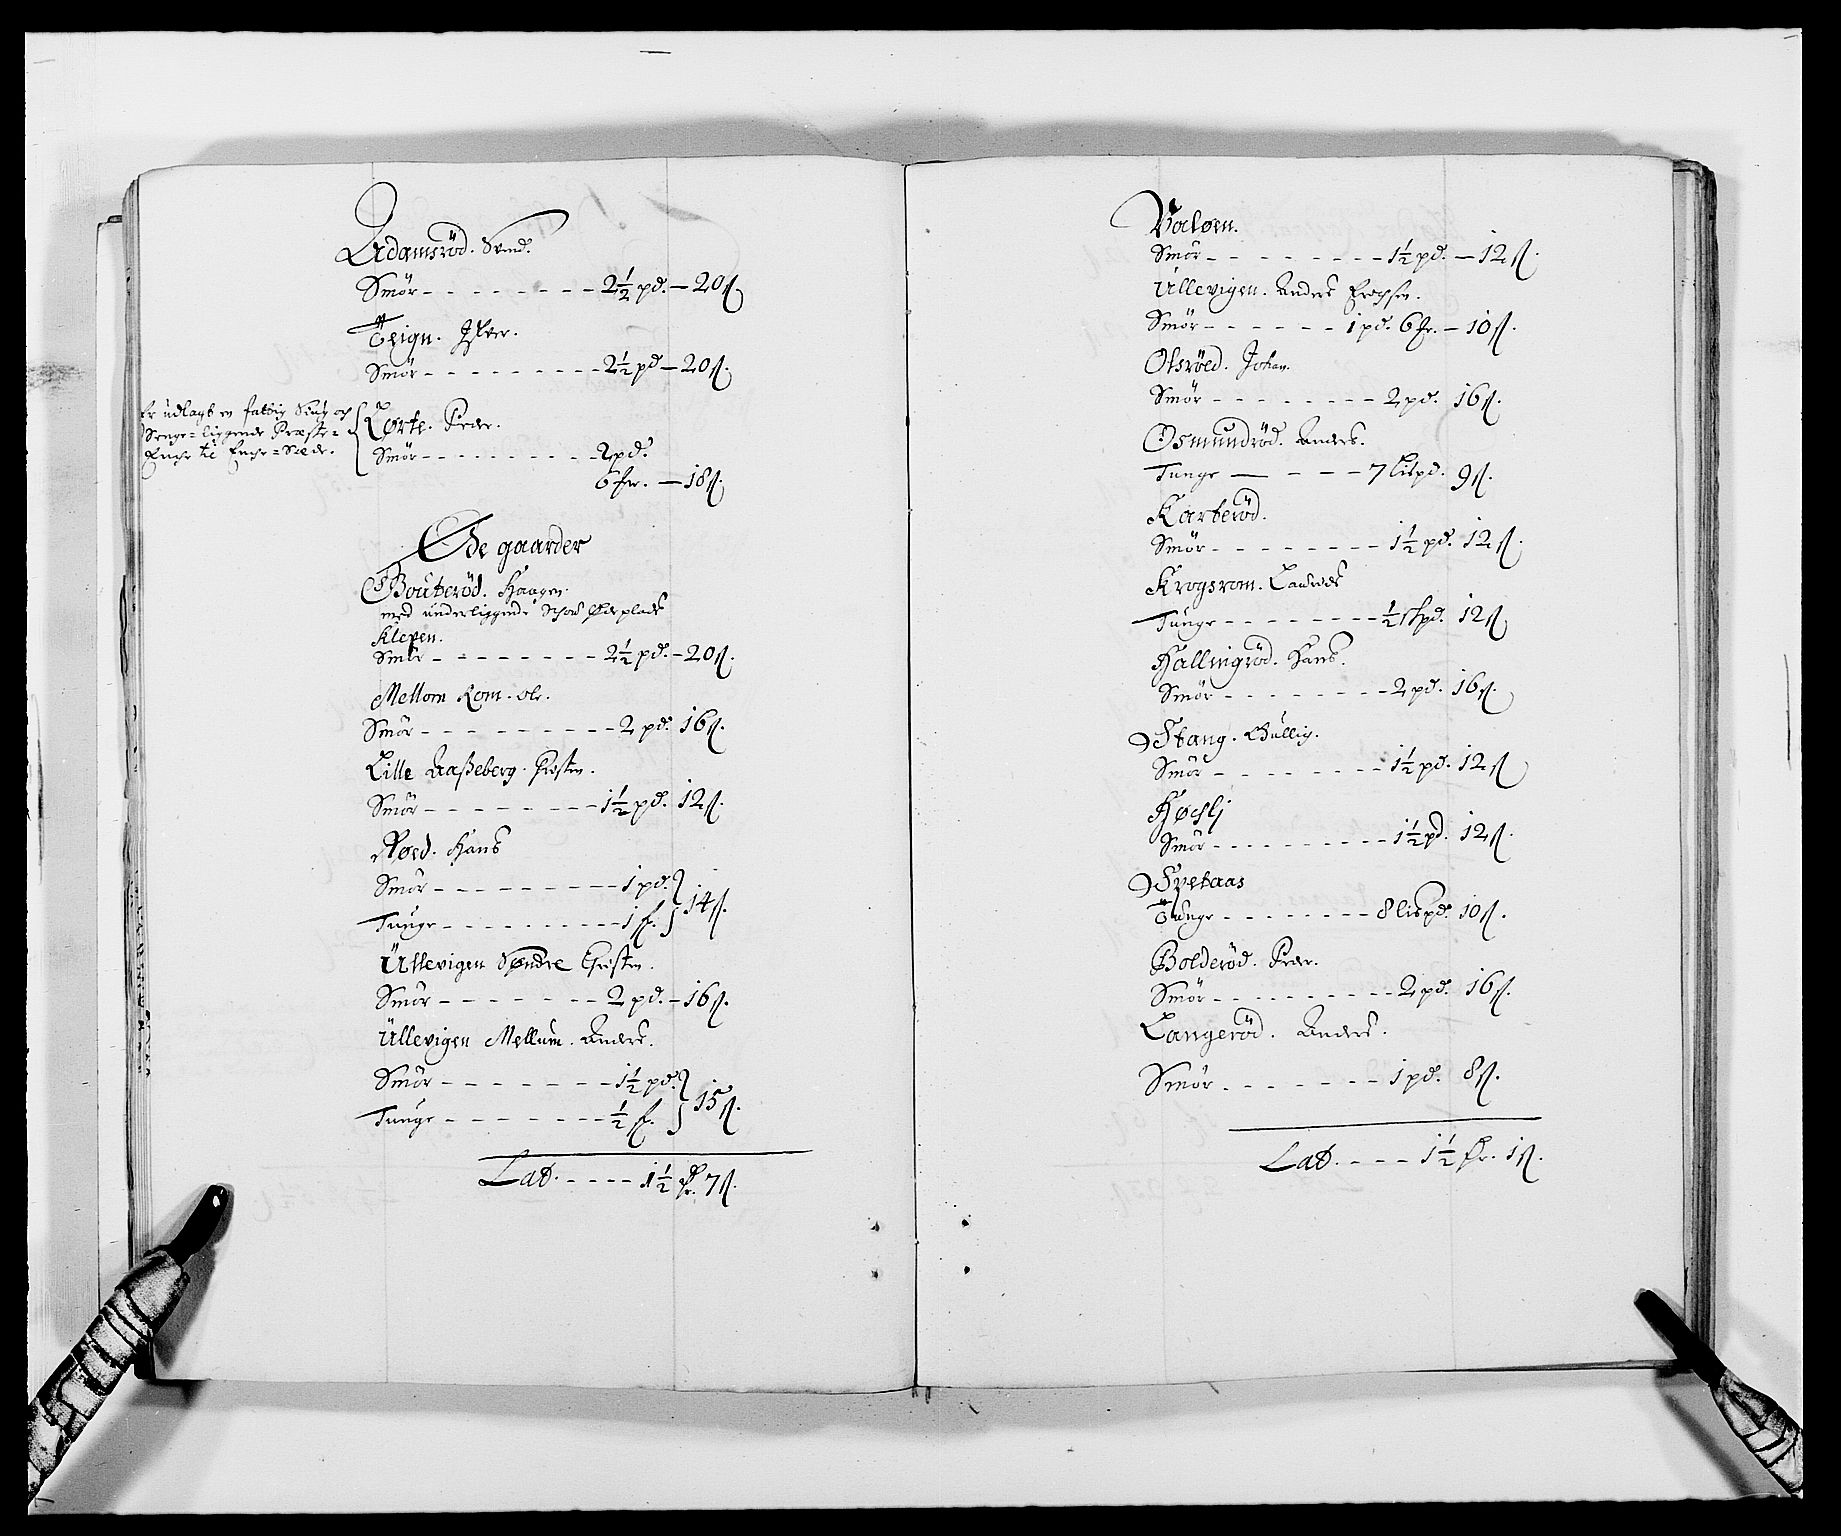 Adamsröd. Svend.
Smör - - - - - - - - 2½ pd. — 20 ß.
Teign. Ifver.
Smör - - - - - - - - - 2½ pd — 20 ß.
Er udlagt en fattig Siug och
Senge-liggende Præste-
Enche til Enche-Sæde.
Lørte. Peder.
Smör - - - - - - - - - 2 pd.
6 fr. — 18 ß.
Øde gaarder
Bouteröd. Haagen.
med underliggende Schou Øde plads
Kleven.
Smör - - - - - - - 2½ pd. - 20 ß.
Mellom Rom. Ole.
Smör - - - - - - - - - 2 pd. 16 ß.
Lille Aaßeberg. Christen.
Smör - - - - - - - - 1½ pd. 12 ß.
Røed. Hans
Smör - - - - - - - - - 1 pd. }
Tunge - - - - - - - - - 1 f. } 14 ß.
Ullevigen Søndre Christen.
Smör - - - - - - - 2 pd. - 16 ß.
Ullevigen Mellum. Anders.
Smör - - - - - - - 1½ pd. }
Tunge - - - - - - - ½ f. } 15 ß.
Lat. - - - - 1½ fr. 7 ß.
Valøen.
Smör - - - - - - - - 1½ pd. — 12 ß.
Ullevigen. Anders Erichsen.
Smör - - - - - - 1 pd. 6 fr. — 10 ß.
Olsröed. Johan.
Smör - - - - - - - - 2 pd. 16 ß.
Osmundröd. Anders.
Tunge — - - - 7 Lispd. 9 ß.
Karteröd.
Smör - - - - - - - - 1½ pd. 12 ß.
Krogsrom. Laurids
Tunge - - - - - - - - ½ Schpd. 12 ß
Hallingröd. Hans.
Smör - - - - - - - - 2 pd. 16 ß.
Stang. Gullig.
Smör - - - - - - - - 1½ pd. 12 ß
Høisli
Smör - - - - - - - - - 1½ pd. 12 ß.
Svetaas
Tunge - - - - - - - - 8 Lispd. 10 ß.
Bolderöd. Peder.
Smör - - - - - - - - - 2 pd. 16 ß.
Langeröd. Anders.
Smör - - - - - - - 1 pd. 8 ß.
Lat. - - - - 1½ fr. 1 ß.